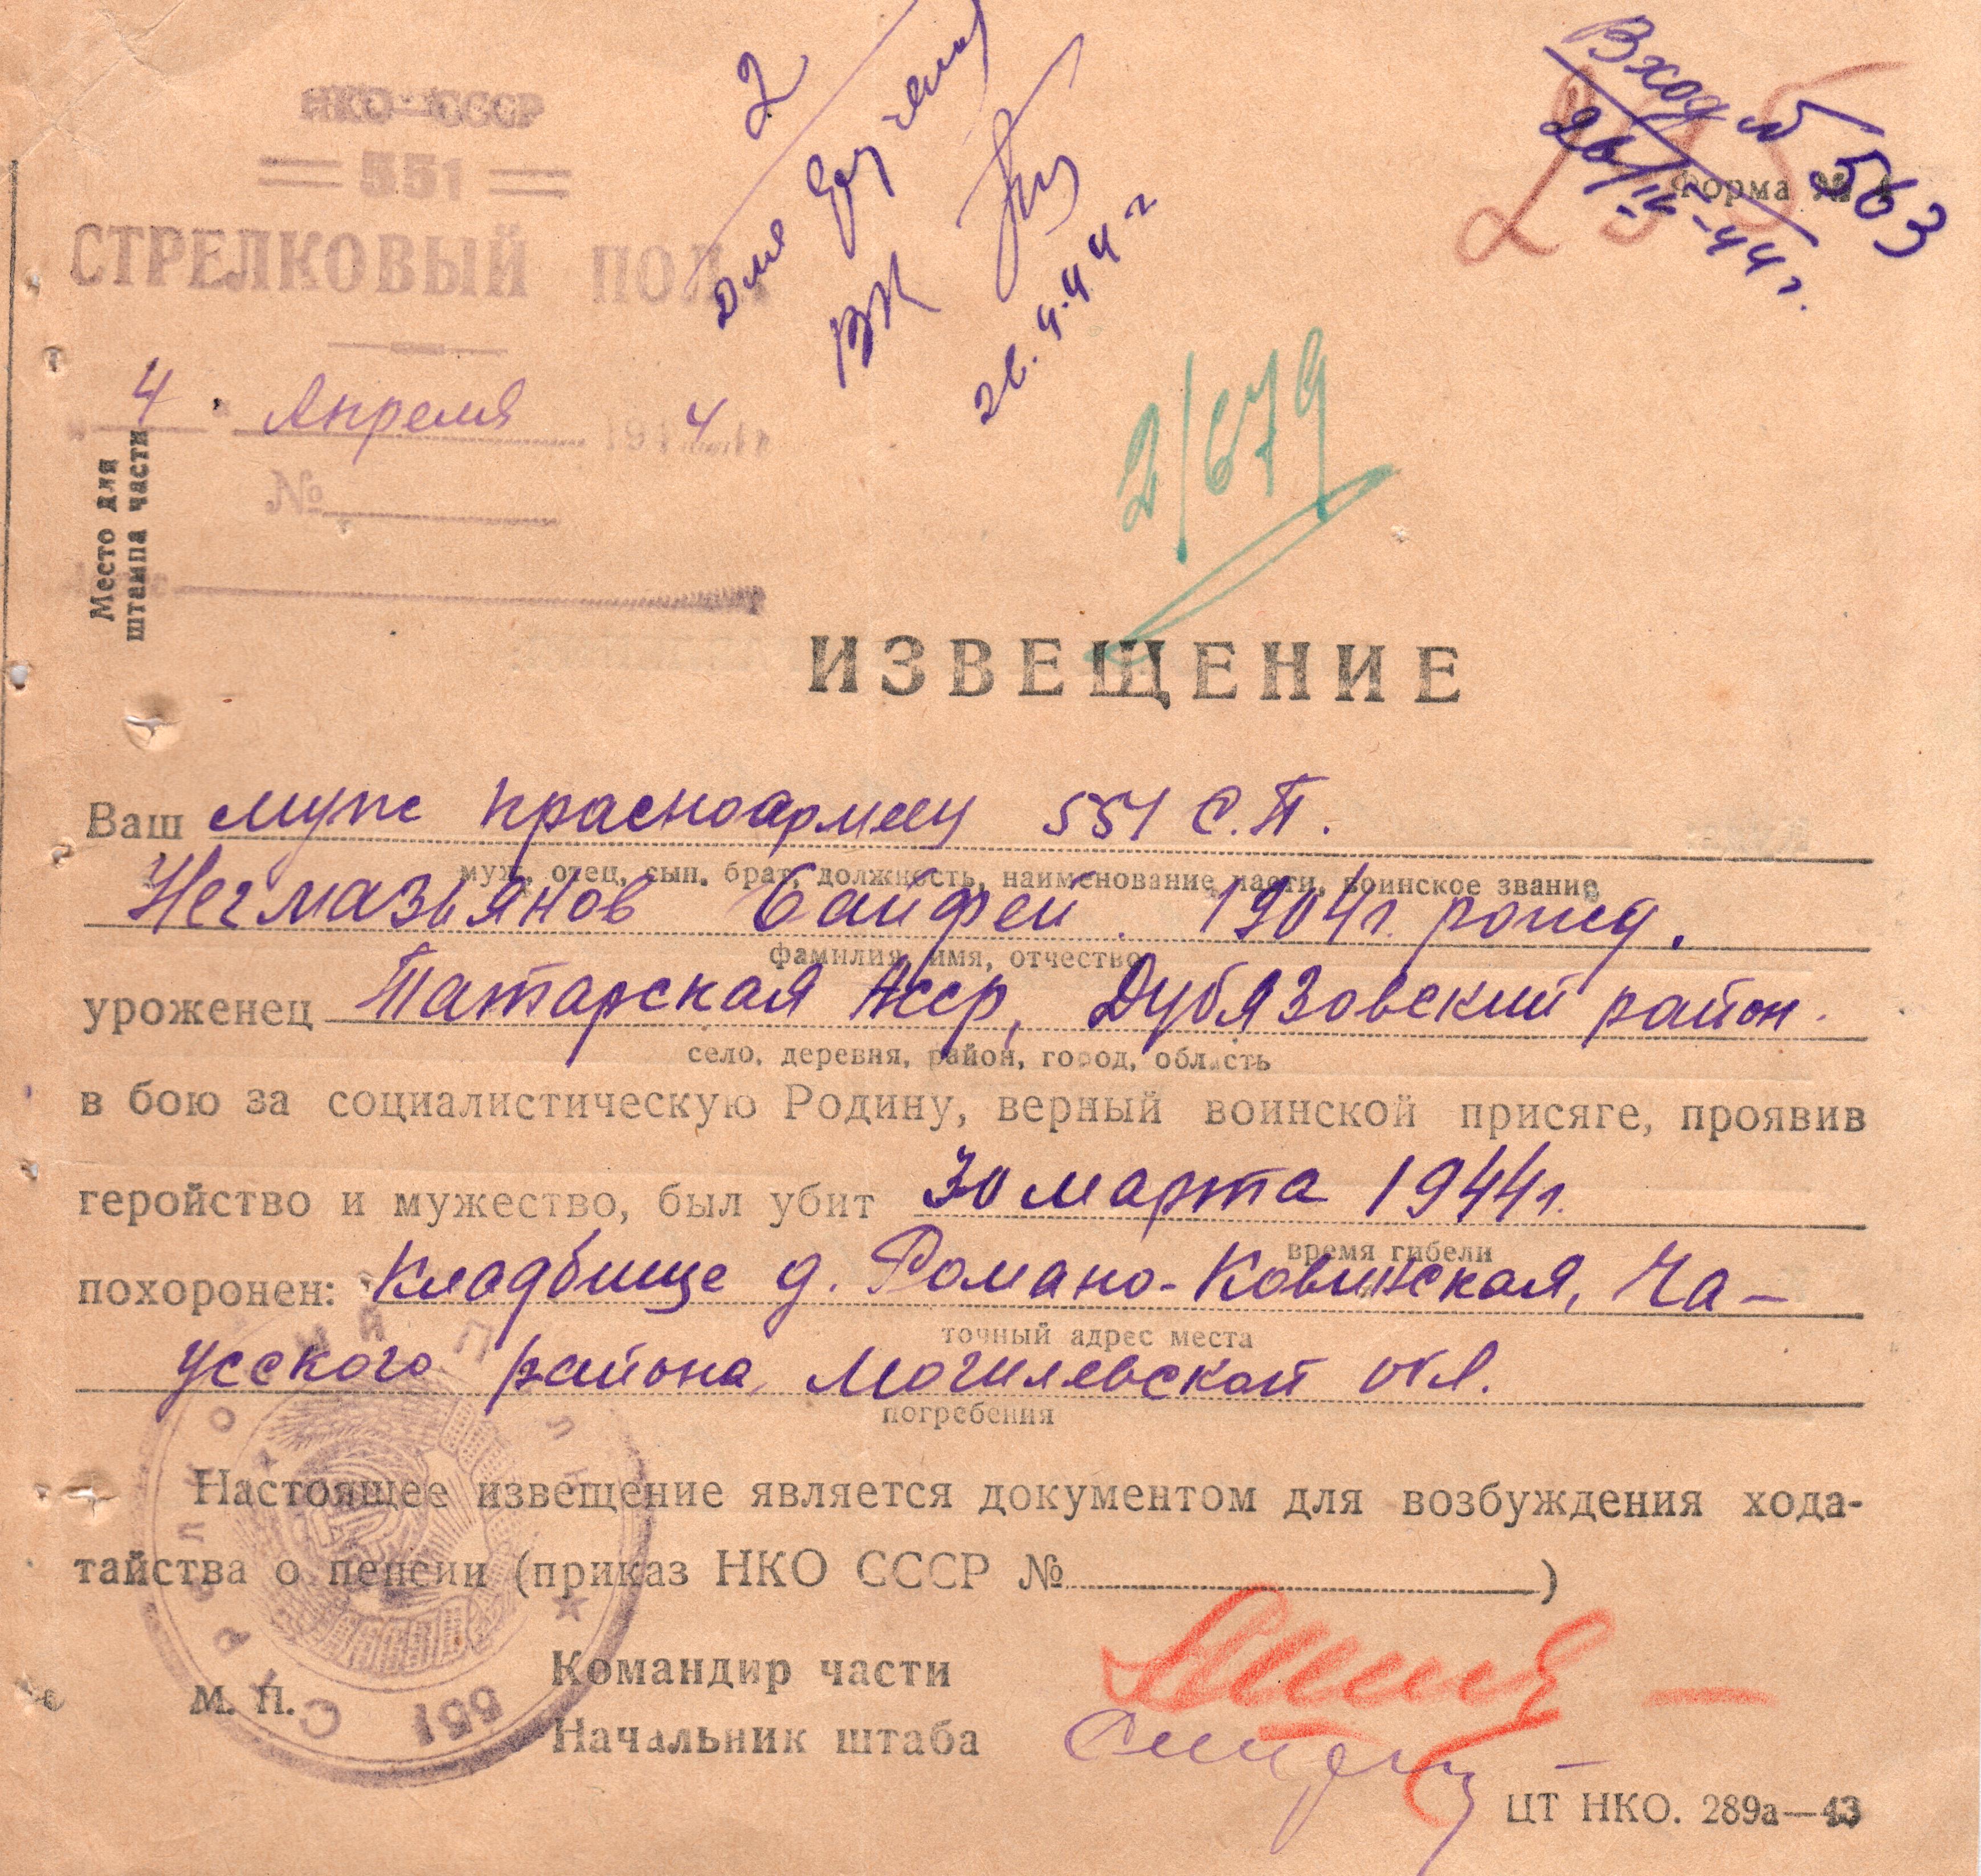 НКО СССР
551
СТРЕЛКОВЫЙ ПОЛК
4 Апреля 1944 г.
№
Место для
штампа части
2
для
ВК
26.4.44 г
Вход № 563
26/IV-44 г.
Форма №
2/679
ИЗВЕЩЕНИЕ
Ваш муж красноармеец 551 С.П.
муж, отец, сын, брат, должность, наименование части, воинское звание
Негмазьянов Байфей. 1904 г. рожд.
фамилия, имя, отчество
уроженец Татарская Асср, Дубязовский район.
село, деревня, район, город, область
в бою за социалистическую Родину, верный воинской присяге, проявив
геройство и мужество, был убит 30 марта 1944 г.
время гибели
похоронен: Кладбище д. Романо-Ковинская, Ча-
точный адрес места
усского района, Могилевской обл.
погребения
Настоящее извещение является документом для возбуждения хода-
тайства о пенсии (приказ НКО СССР № )
Командир части
М. П.
Начальник штаба
551 СТРЕЛКОВЫЙ П
ЦТ НКО. 289а—43